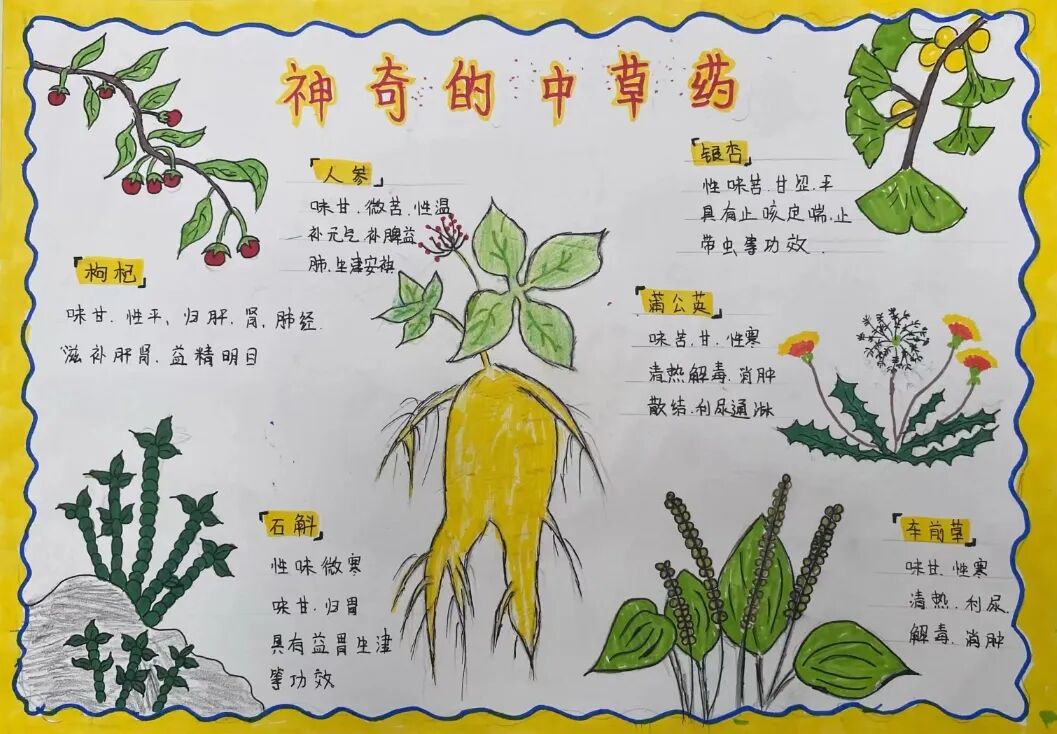 神奇的中草药
人参
味甘、微苦、性温
补元气、补脾益
肺、生津安神
银杏
性味苦、甘涩、平
具有止咳定喘、止
带虫等功效
枸杞
味甘、性平、归肝、肾、肺经
滋补肝肾、益精明目
蒲公英
味苦、甘、性寒
清热解毒、消肿
散结、利尿通淋
石斛
性味微寒
味甘、归胃
具有益胃生津
等功效
车前草
味甘、性寒
清热、利尿、
解毒、消肿